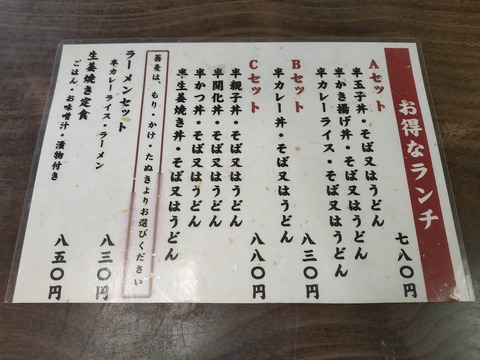 お得なランチ
Aセット
半玉子丼・そば又はうどん
半かき揚げ丼・そば又はうどん
半カレーライス・そば又はうどん
七八〇円
Bセット
半カレー丼・そば又はうどん
八三〇円
Cセット
半親子丼・そば又はうどん
半開化丼・そば又はうどん
半かつ丼・そば又はうどん
半生姜焼き丼・そば又はうどん
八八〇円
蕎麦は、もり・かけ・たぬきよりお選びください
ラーメンセット
半カレーライス・ラーメン
八三〇円
生姜焼き定食
ごはん・お味噌汁・漬物付き
八五〇円